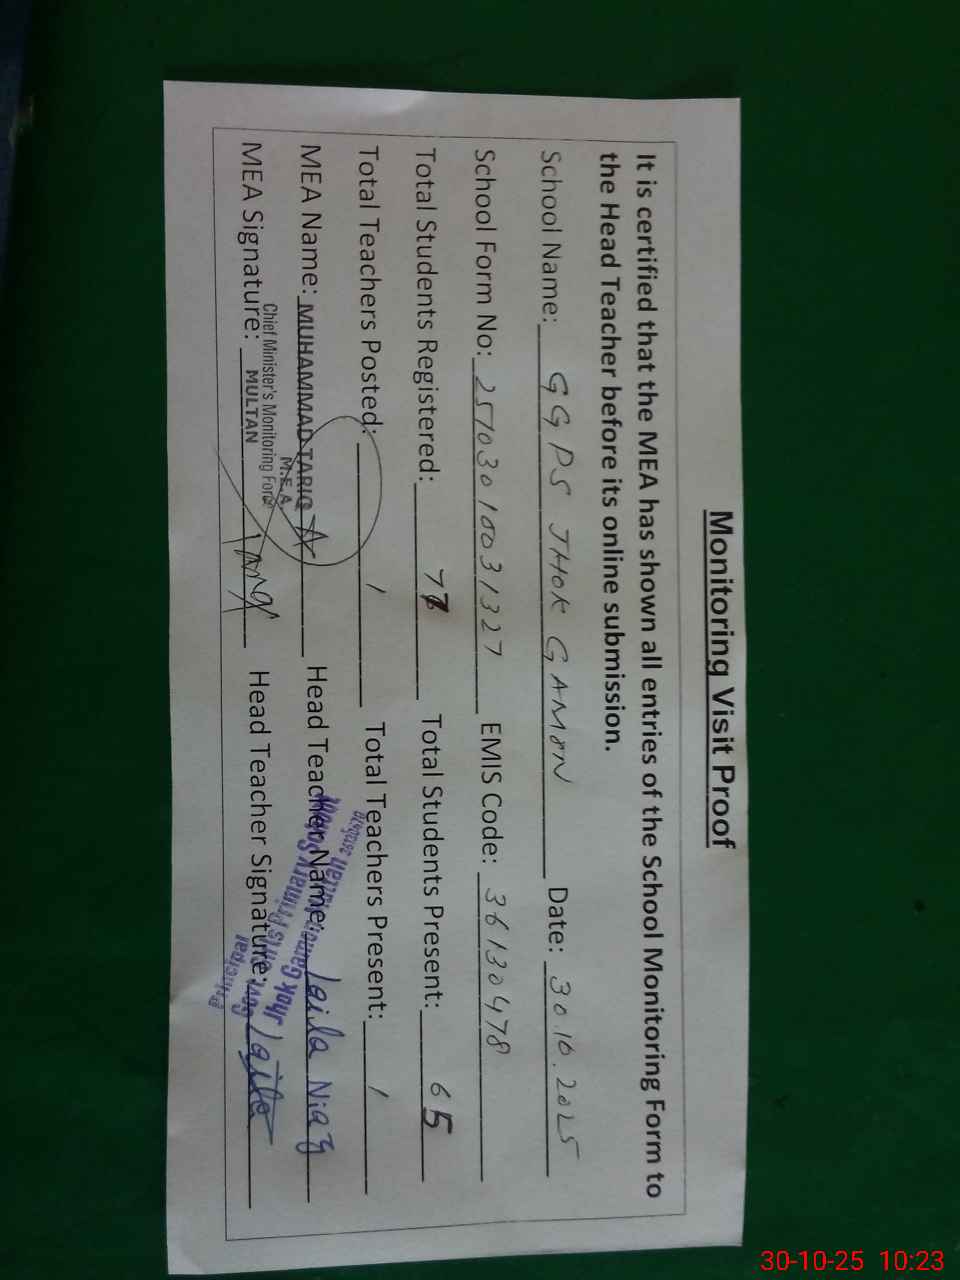 Monitoring Visit Proof
It is certified that the MEA has shown all entries of the School Monitoring Form to
the Head Teacher before its online submission.
School Name: GGPS JHOK GAMON Date: 30.10.2025
School Form No: 25103010031327 EMIS Code: 36130478
Total Students Registered: 77 Total Students Present: 65
Total Teachers Posted: 1 Total Teachers Present: 1
MEA Name: MUHAMMAD TARIQ Head Teacher Name: laila Niaz
M.E.A.
Chief Minister's Monitoring Force
MEA Signature: MULTAN Tariq Head Teacher Signature: laila
Principal
30-10-25 10:23